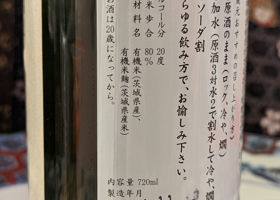 おすすめの召し上がり方
原酒のまま（ロック、冷や、燗）
加水（原酒3対水2で割水して冷や、燗
ソーダ割
らゆる飲み方で、お愉しみ下さい。
コール分 20度
米歩合 80%
材料名 有機米（茨城県産）、
有機米麹（茨城県産米）
内容量 720ml
製造年月
お酒は20歳になってから。